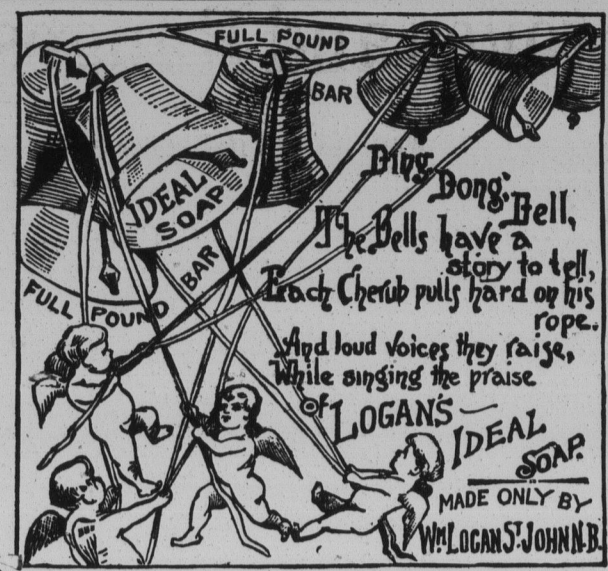 FULL POUND
BAR
IDEAL
SOAP
FULL POUND BAR
Ding, Dong, Bell,
The Bells have a
story to tell,
Each Cherub pulls hard on his
rope.
And loud voices they raise,
While singing the praise
of LOGAN'S —
IDEAL
SOAP.
MADE ONLY BY
WM LOGAN ST JOHN N.B.